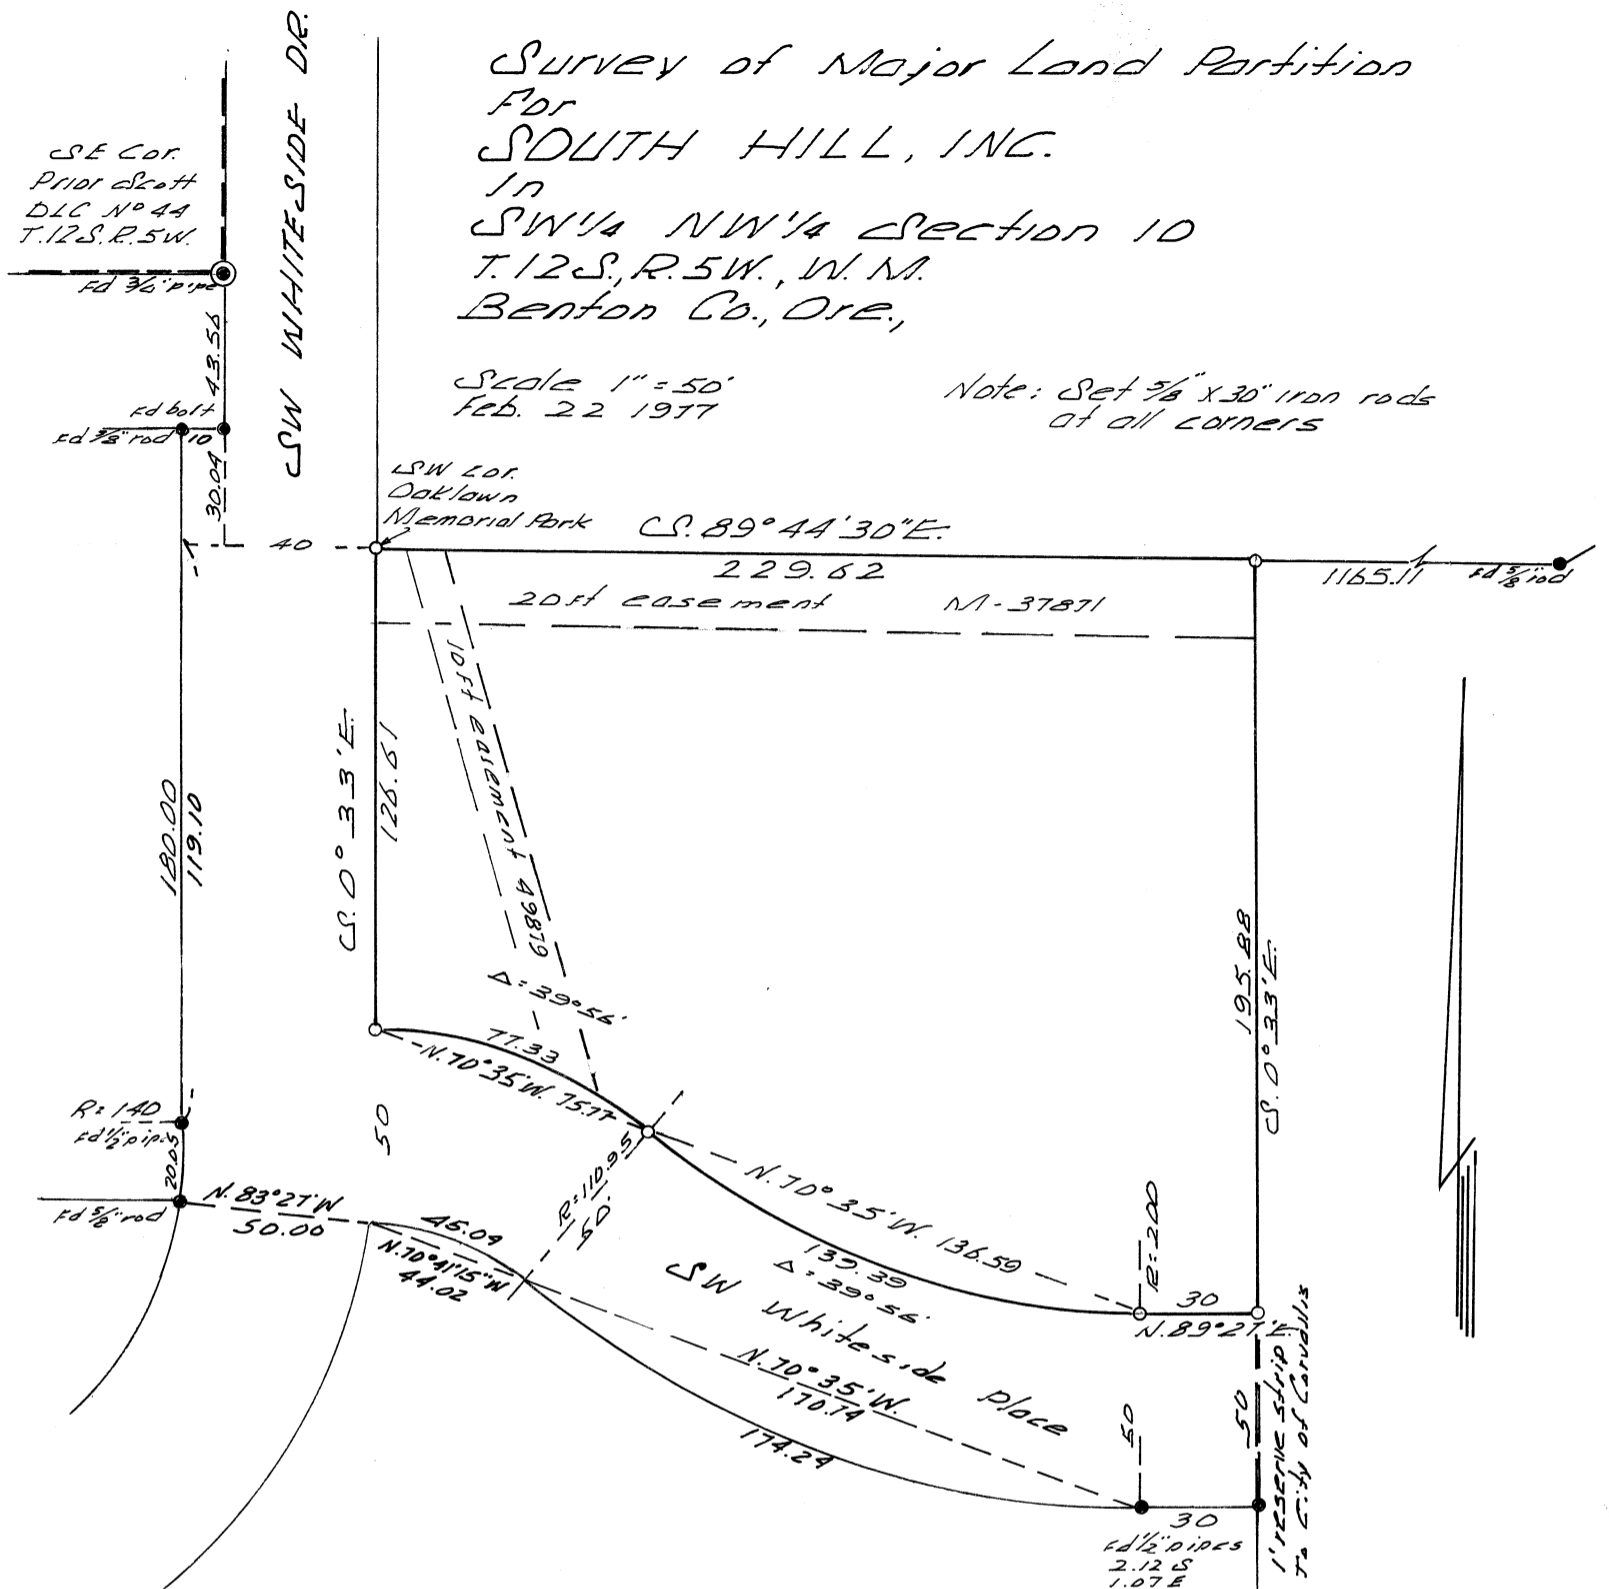 Survey of Major Land Partition
For
SOUTH HILL, INC.
In
SW 1/4 NW 1/4 Section 10
T.12S., R.5W., W.M.
Benton Co., Ore.,
Scale 1" = 50'
Feb. 22 1977
Note: Set 5/8" x 30" iron rods
at all corners
SW WHITESIDE DR.
SE Cor.
Prior Scott
DLC Nº 44
T.12S. R.5W.
Fd 3/4" pipe
43.56
Fd bolt
Fd 3/8" rod
10
30.04
40
SW Cor.
Oaklawn
Memorial Park
S. 89° 44' 30" E.
229.62
1165.11
Fd 5/8" rod
20 Ft easement M-37871
10 Ft easement 49879
S. 0° 33' E.
126.61
180.00
119.10
195.88
S. 0° 33' E.
Δ = 39° 56'
77.33
N. 70° 35' W. 75.77
R = 140
Fd 1/2" pipe
20.05
50
Fd 5/8" rod
N. 83° 27' W
50.00
45.09
N. 70° 41' 15" W
44.02
R = 110.95
50'
N. 70° 35' W. 136.59
139.39
Δ = 39° 56'
R = 200
30
N. 89° 27' E.
SW Whiteside Place
N. 70° 35' W.
170.74
174.24
50
50
1' reserve strip
To City of Corvallis
30
Fd 1/2" pipes
2.12 S
1.07 E